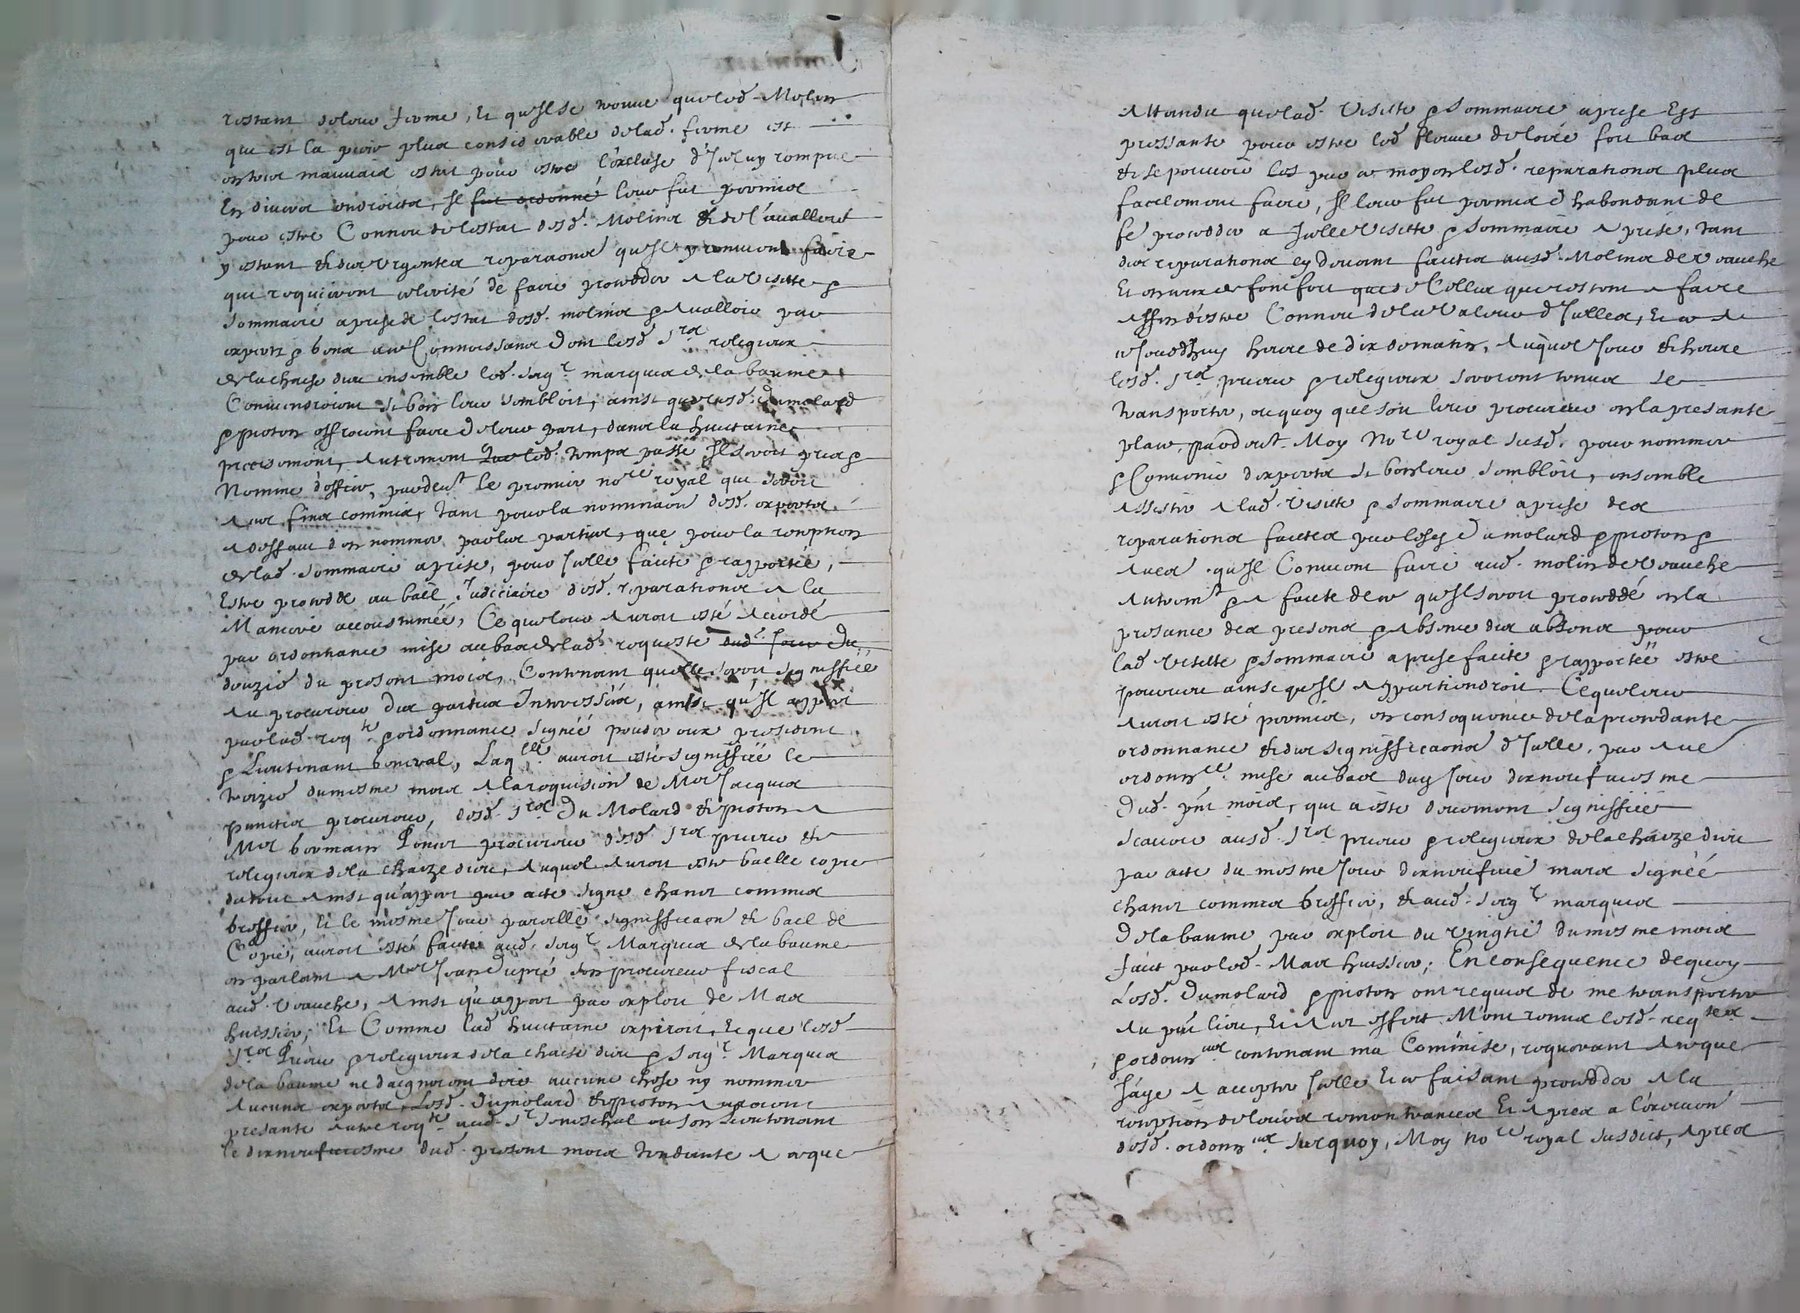 restant de leur ferme, Et qu'Il se trouve que led. Molin
qui est la piece plus considerable de lad. ferme est
en tres mauvais estat pour estre l'excluse d'Iceluy rompue
En divers endroictz, Il fut ordonné leur fut permis
pour estre Conneu de l'estat desd. Molins & de l'avalloir
y estant & des urgentes reparaons qu'Il y convient faire
qui requierent celerité de faire proceder a la visitte &
sommaire aprise de l'estat desd. molins & avalloir par
expertz & gens a ce Connoissans dont lesd. Srs religieux
de la chaise dieu ensemble led. seigr marquis de la baume
Conviendroient si bon leur sembloit, ainsi que lesd. dumolard
& pioton offroient faire de leur part, dans la huictaine
precisement, autrement & led. temps passé Il seroit pris &
Nommé d'office, pardevt le premier nore royal qui seroit
a ces fins commis, tant pour la nominaon desd. expertz
a deffaut d'en nommer par les parties, que pour la reception
de lad. sommaire aprise, pour Icelle faicte & rapportée,
Estre procedé au bail Judiciaire desd. reparations a la
Maniere accoustumée, Ce que leur auroit esté accordé
par ordonnance mise au bas de lad. requeste dud. Jour du
douzie du present mois, Contenant qu'elle seroit signiffiée
au procureur des parties Interessées, ainsi qu'Il appert
par lad. reqte & ordonnance signée president
& Lieutenant general, Laqlle auroit esté signiffiée le
treizie du mesme mois a la requision de Mer Jacques
procureur, desd. Srs Du Molard & pioton a
Mer procureur desd. Srs Prieur &
religieux de la chaize dieu, auquel auroit esté baillé copie
du tout ainsi qu'appert par acte signé chanes commis
greffier, Et le mesme Jour pareille signifficaon & bail de
Copie, auroit esté faicte aud. seigr Marquis de la baume
en parlant a Mer Jean dupré son procureur fiscal
aud. vauche, ainsi qu'appert par exploit de Mars
huissier; Et Comme lad. huictaine expiroit, Et que lesd.
Srs Prieur & religieux de la chaise dieu & seigr Marquis
de la baume ne daignerent dire aucune chose ny nommer
aucuns expertz, Lesd. dumolard & pioton auroient
presanté autre reqte aud. Sr seneschal ou son Lieutenant
le dixneufiesme dud. present mois tendante a ce que
Attandu que lad. visitte & sommaire aprise Est
pressante pour estre led. fleuve de loire fort bas
& se pouvoir les par ce moyen lesd. reparations plus
facilement faire, Il leur fut permis d'habondant de
fe proceder a Icelle visitte & sommaire aprise, tant
des reparations cy devant faictes ausd. Molins de vauche
Et en iceux que de Celles qui restent a faire
affin d'estre Conneu de la valeur d'Icelles, Et ce a
cejourd'huy heure de dix de matin, auquel Jour & heure
lesd. Srs prieur & religieux seroient tenus se
transporter, ou quoy que soit leur procureur en la presante
place, pardevt Moy Nore royal susd. pour nommer
& Convenir d'expertz si bon leur sembloit, ensemble
assister a lad. visitte & sommaire aprise des
reparations faictes par lesd. dumolard & pioton &
a celles qu'Il Convient faire aud. molin de vauche
autremt & a faute de ce qu'Il seroit procedé en la
presance des presens & absence des absens pour
lad. visitte & sommaire aprise faicte & rapportée estre
pourveu ainsi qu'Il appartiendroit. Ce que leur
auroit esté permis, en consequence de la precedante
ordonnance & des signifficaons d'Icelle, par autre
ordonnce mise au bas du Jour dixneufiesme
dud. pnt mois, qui a esté deuement signiffiée
scavoir ausd. Srs prieur & religieux de la chaize dieu
par acte du mesme Jour dixneufvie mars signée
chanes commis greffier, & aud. seigr marquis
de la baume, par exploit du vingtie du mesme mois
faict par led. Mars huissier; En consequence de quoy
Lesd. dumolard & pioton ont requis de me transporter
au pnt lieu, Et a cet effect M'ont remis lesd. reqtes
& ordonnces contenant ma Commise, requerant a ce que
J'aye a accepter Icelle Et ce faisant proceder a la
reception de leurs remontrances Et apres a l'execuon
desd. ordonnces sur quoy, Moy Nore royal susdict, apres